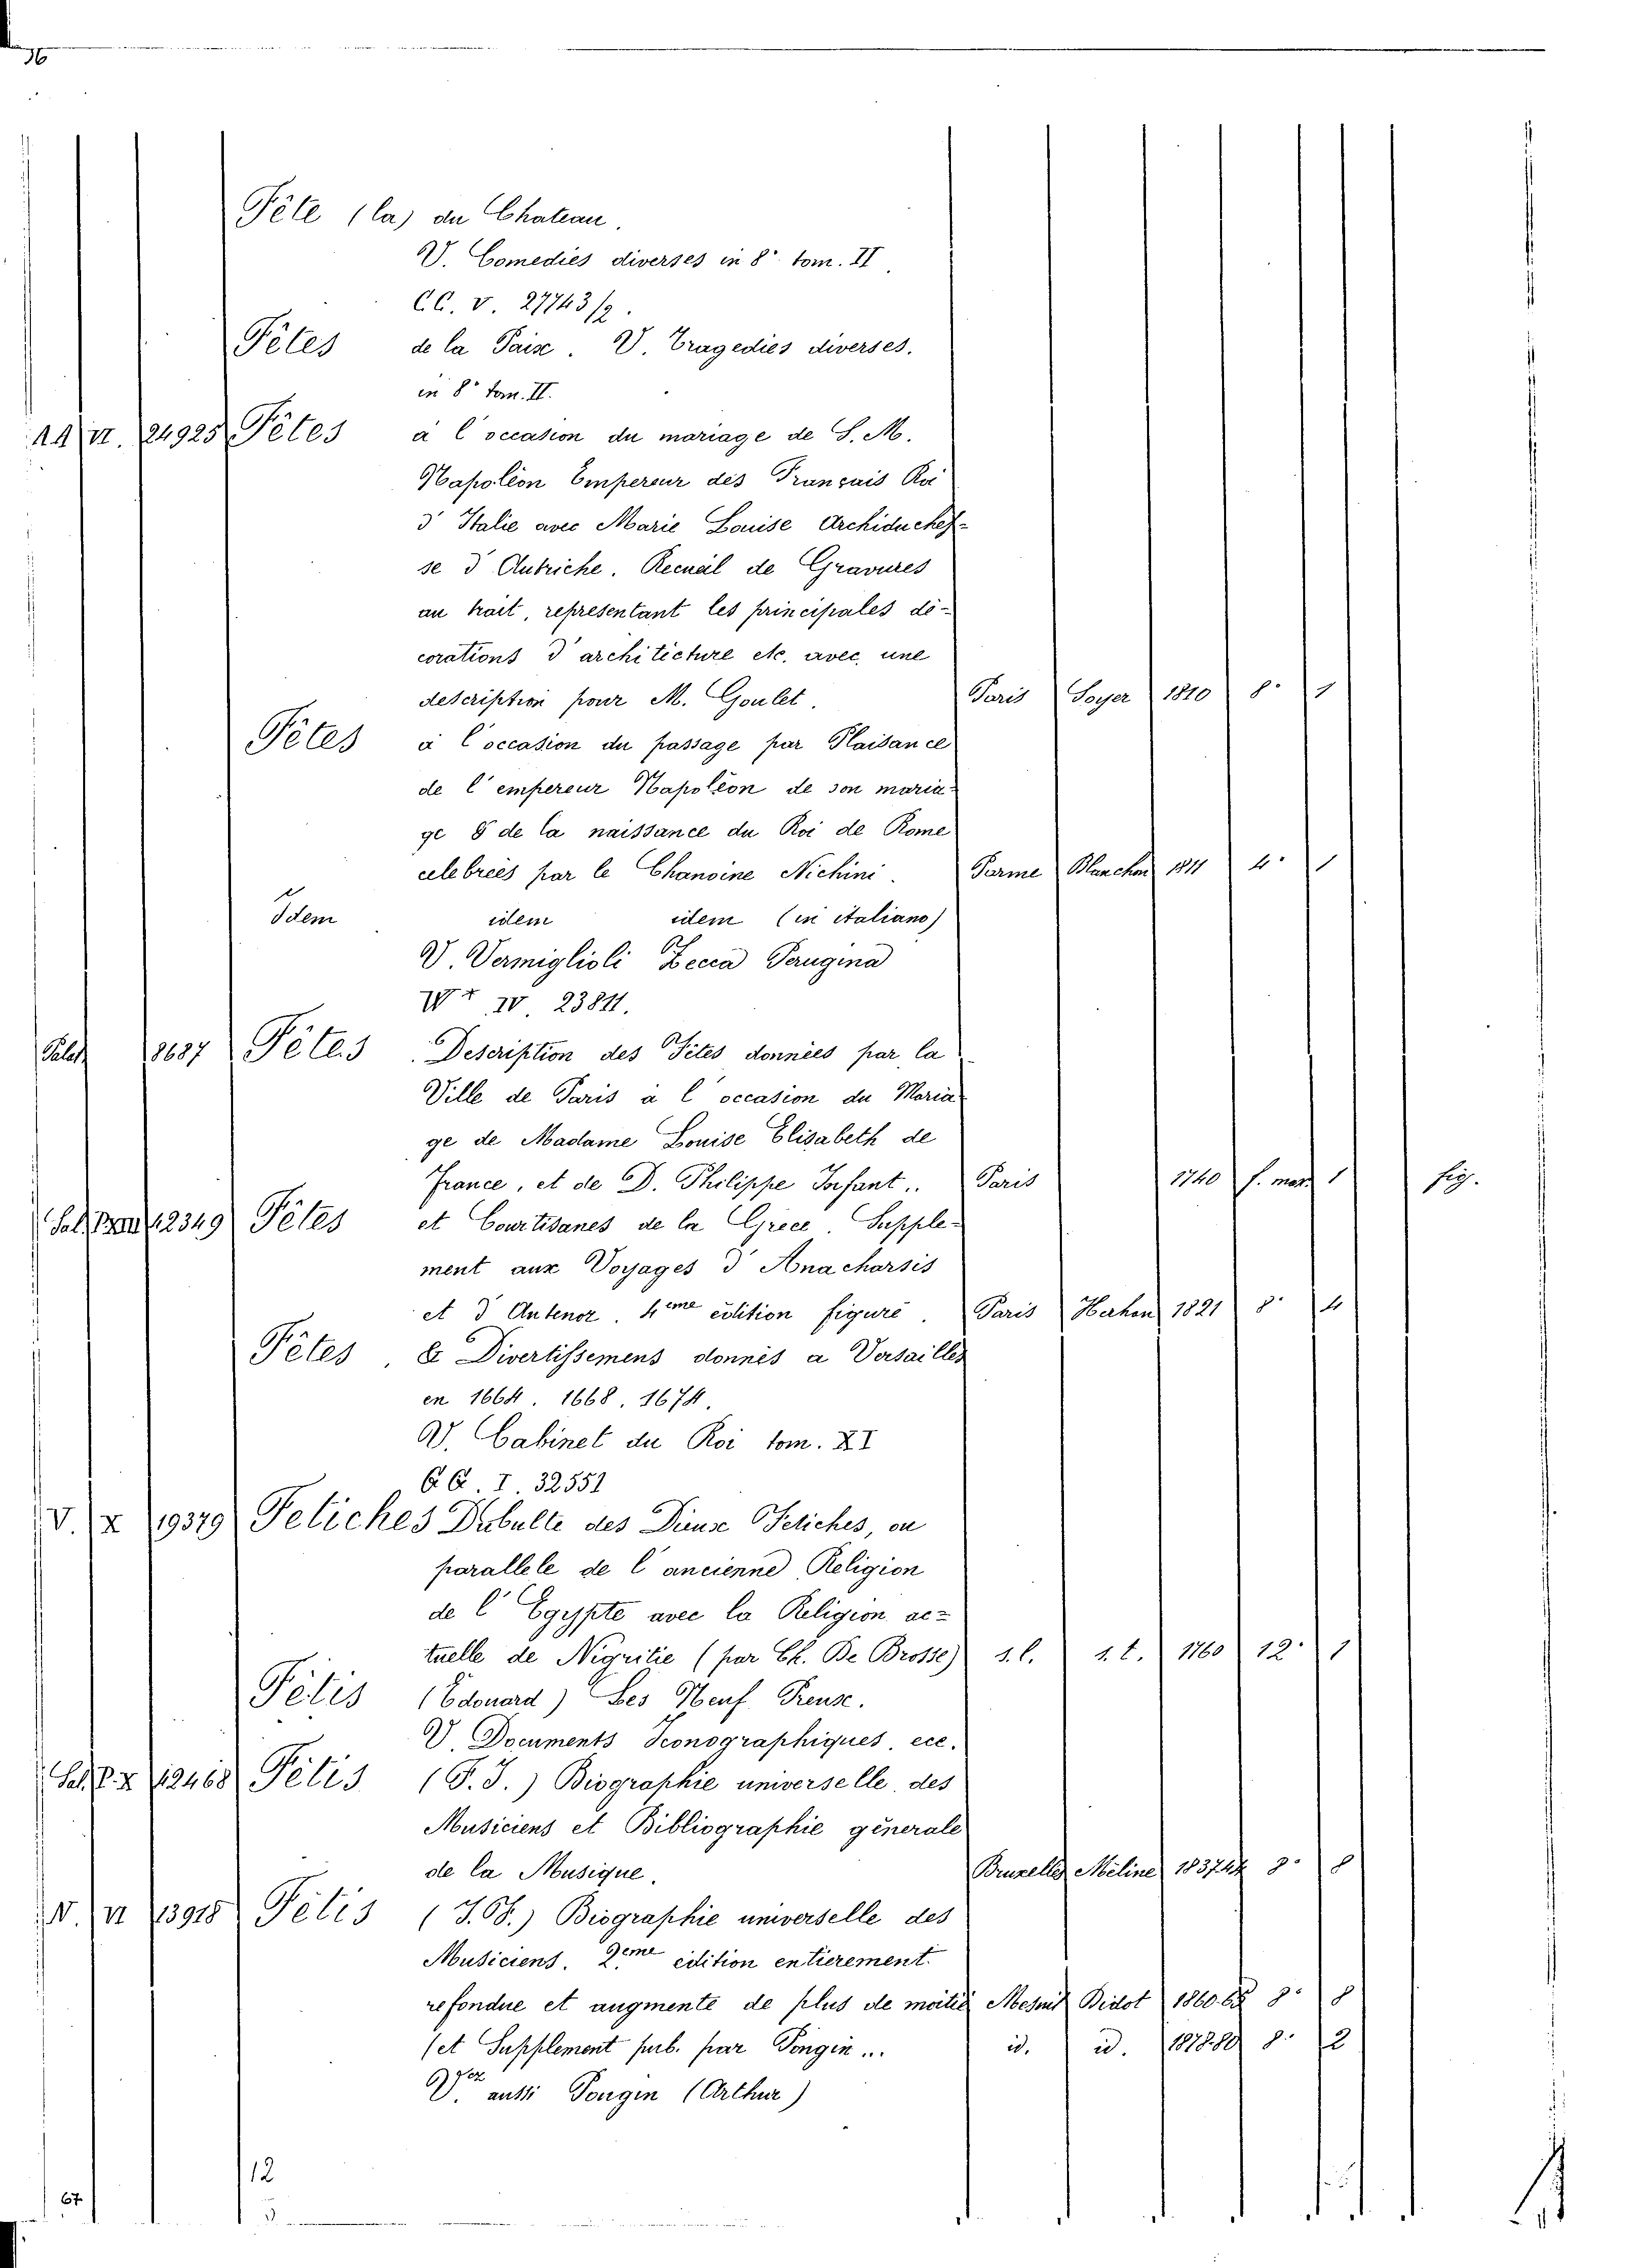 36
Fête (la) du Chateau.
V. Comedies diverses in 8° tom. II
CC. V. 27743/2.
Fêtes de la Paix. V. Tragedies diverses.
in 8° tom. II.
AA VI. 24925 Fêtes à l'occasion du mariage de S. M.
Napoléon Empereur des Français Roi
d'Italie avec Marie Louise Archiduches-
se d'Autriche. Recueil de Gravures
au trait, representant les principales dé-
corations d'architecture etc. avec une
description pour M. Goulet. Paris Soyer 1810 8° 1
Fêtes à l'occasion du passage par Plaisance
de l'empereur Napoléon de son maria-
ge & de la naissance du Roi de Rome
celebrées par le Chanoine Nichini. Parme Blanchon 1811 4° 1
Idem idem idem (in italiano)
V. Vermiglioli Zecca Perugina
IV 23811.
Palat 8687 Fêtes. Description des Fêtes données par la
Ville de Paris à l'occasion du Maria-
ge de Madame Louise Elisabeth de
France, et de D. Philippe Infant.. Paris 1740 f. mas. 1 fig.
12349 Fêtes et Courtisanes de la Grece. Supple-
ment aux Voyages d'Anacharsis
et d'Antenor. 4eme edition figuré. Paris 1821 8° 4
Fêtes, & Divertissemens donnés a Versailles
en 1664. 1668. 1674.
V. Cabinet du Roi tom. XI
I. 32551
V. X 19379 Fetiches Du culte des Dieux Fetiches, ou
parallele de l'ancienne Religion
de l'Egypte avec la Religion ac-
tuelle de Nigritie (par Ch. De Brosse) s. l. s. t. 1760 12° 1
Fétis (Edouard) Les Neuf Preux.
V. Documents Iconographiques, ecc.
12468 Fétis (F. J.) Biographie universelle des
Musiciens et Bibliographie génerale
de la Musique. Bruxelles Méline 1837.44 8° 8
V. VI 13918 Fétis (J. F.) Biographie universelle des
Musiciens. 2.eme edition entierement
refondue et augmenté de plus de moitié Mesnil Didot 1860.65 8° 8
(et Supplement pub. par Pougin... id. id. 1878.80 8° 2
aussi Pougin (Arthur)
12
67